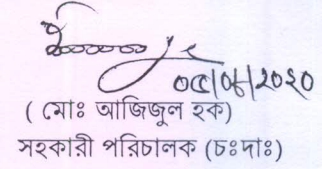 ০৫/০৮/২০২০
( মোঃ আজিজুল হক)
সহকারী পরিচালক (চঃদাঃ)